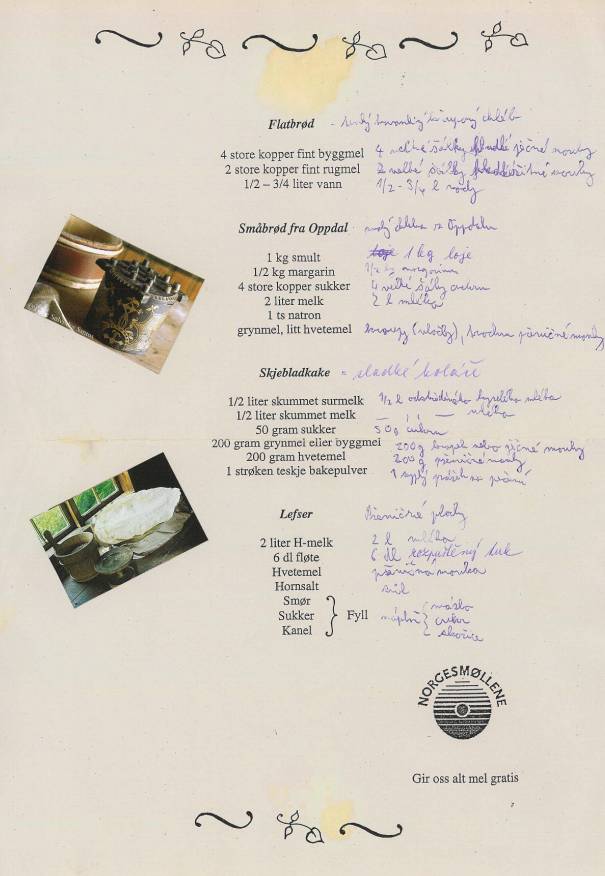 Flatbrød - tvrdý chléb
4 store kopper fint byggmel 4 velké šálky hladké ječné mouky
2 store kopper fint rugmel 2 velké šálky žitné mouky
1/2 – 3/4 liter vann 1/2 - 3/4 l vody
Småbrød fra Oppdal z Oppdalu
1 kg smult 1 kg loje
1/2 kg margarin 1/2 kg margarinu
4 store kopper sukker 4 velké šálky cukru
2 liter melk 2 l mléka
1 ts natron
grynmel, litt hvetemel krupky (vločky), trochu pšeničné mouky
Skjebladkake = sladké koláče
1/2 liter skummet surmelk 1/2 l odstředěného kyselého mléka
1/2 liter skummet melk — " — mléka
50 gram sukker 50g cukru
200 gram grynmel eller byggmel 200g krupek nebo ječné mouky
200 gram hvetemel 200g pšeničné mouky
1 strøken teskje bakepulver 1 prášek na pečení
Lefser Pšeničné placky
2 liter H-melk 2 l mléka
6 dl fløte 6 dl rozpuštěný tuk
Hvetemel pšeničná mouka
Hornsalt sůl
Smør máslo
Sukker Fyll náplň cukr
Kanel skořice
NORGESMØLLENE
Gir oss alt mel gratis